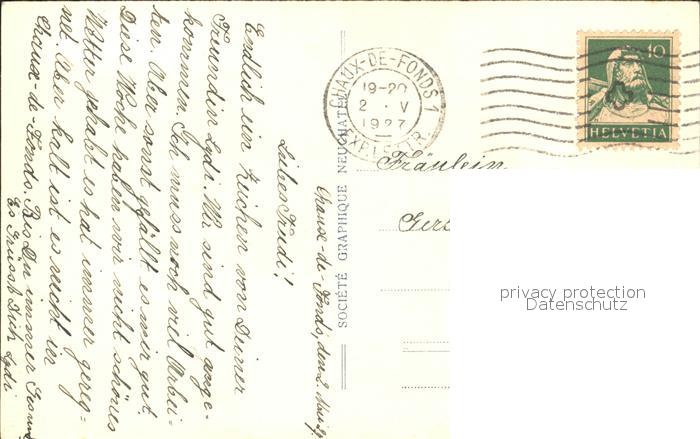 Chaux-de-Fonds, den 2. Mai 27
Liebes Trudi!
Endlich ein Zeichen von Deiner
Freundin Lydi. Wir sind gut ange-
kommen. Ich muss noch viel Arbei-
ten. Aber sonst gefällt es mir gut.
Diese Woche haben wir nicht schönes
Wetter gehabt es hat immer gereg-
net. Aber kalt ist es nicht in
Chaux-de-Fonds. Bis Du immer Gesund
Es Grüsst Dich Lydi
SOCIÉTÉ GRAPHIQUE NEUCHATEL
CHAUX-DE-FONDS 1
19-20
2 · V
1927
EXP. LETTR.
10
HELVETIA
Fräulein
privacy protection
Datenschutz